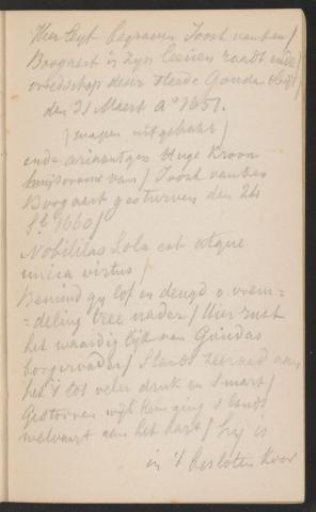 Hier leyt begraven Joost vanden /
Boogaert in zyn leeven raadt ende /
vroedschap deser stede Gouda obijt /
den 31 Maert Aº 1651.
/ wapen uitgehakt /
ende Ariaantgen Huge Kroon
huijsvrouw van / Joost vanden
Boogaert gesturven den 24
1660 /
Nobilitas Sola est atque
unica virtus /
Bemind gy lof en deugd o vrem=
=deling tree nader / Hier rust
het waardig lijk van Goudas
borgervader / 's Lands
het tot veler druk en smart /
Gestorven wijl hem ging 's lands
welvaert aen het hart / hy is
in 't besloten Koor